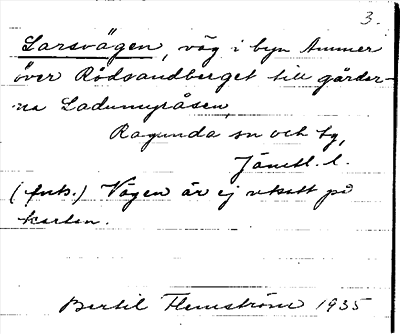 3.
Larsvägen, väg i byn Ammer
över Rödsandberget till gårdar-
na Ladumyråsen,
Ragunda sn och tg,
Jämtl. l.
(Ants.) Vägen är ej utsatt på
kartan.
Bertil Flemström 1935